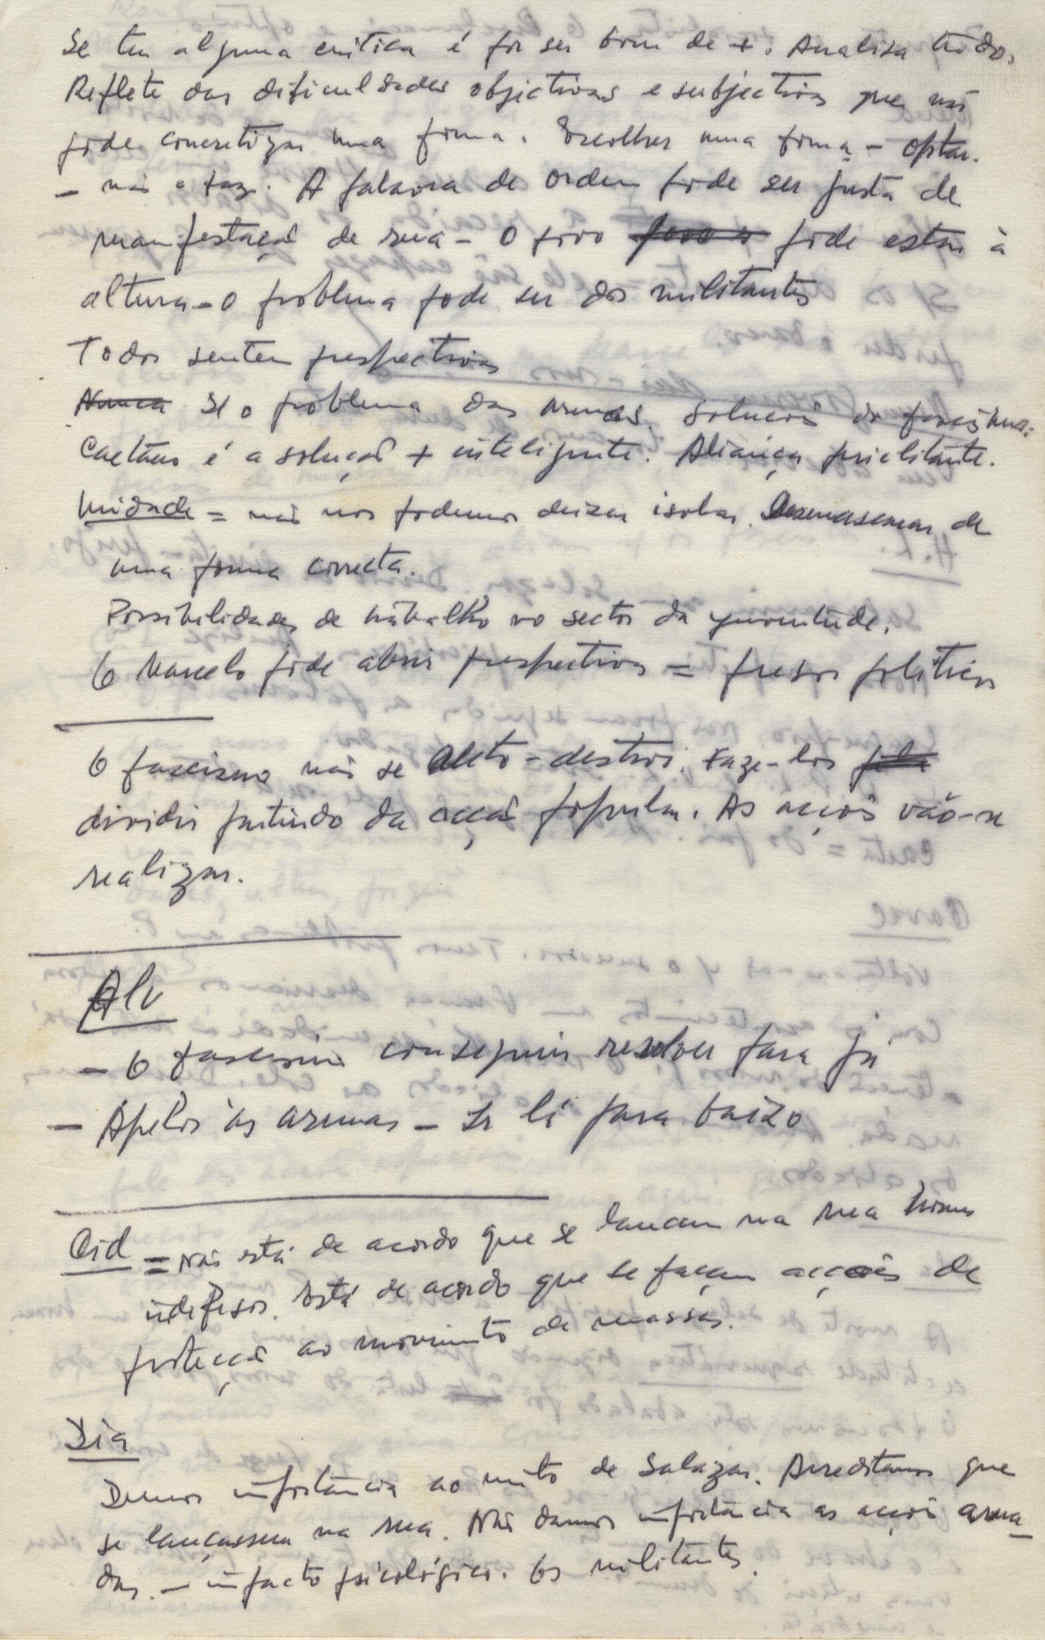 Se tem alguma crítica é por ser bom de +. Analisa tudo.
Reflete das dificuldades objectivas e subjectivas que não
pode concretizar uma forma. Escolher uma forma - optar.
- não o faz. A palavra de ordem pode ser justa de
manifestação de rua - O povo pode estar à
altura - o problema pode ser dos militantes
Todos sentem perspectivas
Nunca se o problema das armas. Solução do fascismo:
Caetano é a solução + inteligente. Aliança
Unidade = não nos podemos deixar isolar. Desmascarar de
uma forma correcta.
Possibilidades de trabalho no sector da juventude.
O Marcelo pode abrir perspectivas = presos políticos
O fascismo não se auto-destroi. Faze-los
dividir partindo da acção popular. As acções vão-se
realizar.
Alv
- O fascismo conseguiu resolver para já
- Apelos às armas - se lá para baixo
Cid = Não está de acordo que se lancem na rua homens
indefesos. Está de acordo que se façam acções de
protecção ao movimento de massas.
Dia
Demos importância ao mito de Salazar. Acreditamos que
se lançassem na rua. Não damos importância as acções arma-
das - impacto psicológico. Os militantes.